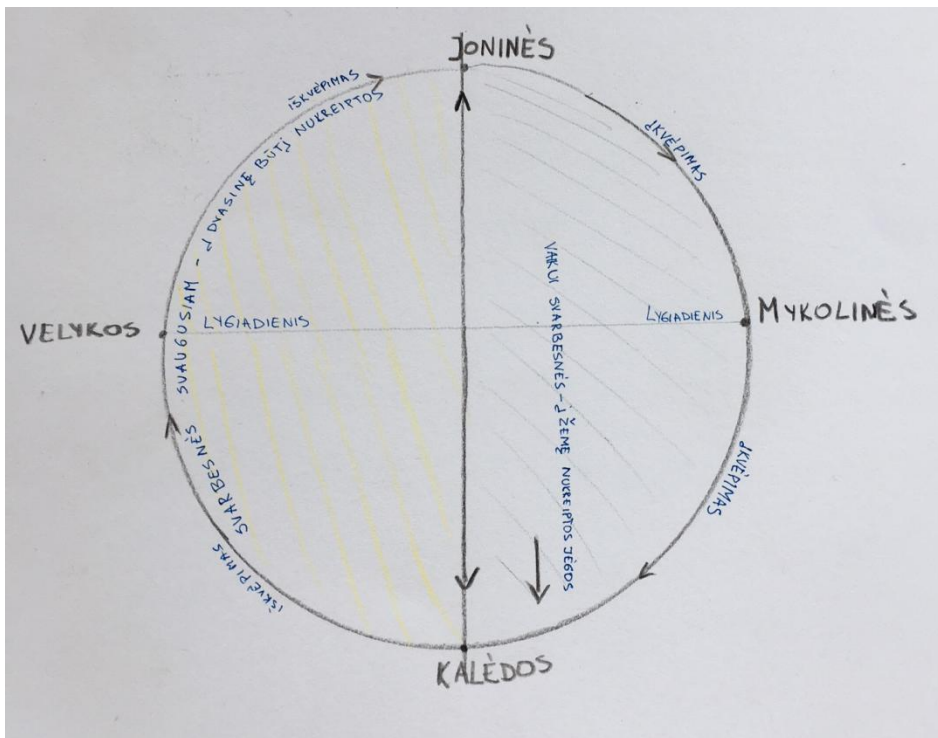 JONINĖS
IŠKVĖPIMAS
ĮKVĖPIMAS
SVARBESNĖS SUAUGUSIAM - Į DVASINĘ BŪTĮ NUKREIPTOS
VAIKUI SVARBESNĖS - Į ŽEMĘ NUKREIPTOS JĖGOS
VELYKOS
LYGIADIENIS
LYGIADIENIS
MYKOLINĖS
IŠKVĖPIMAS
ĮKVĖPIMAS
KALĖDOS